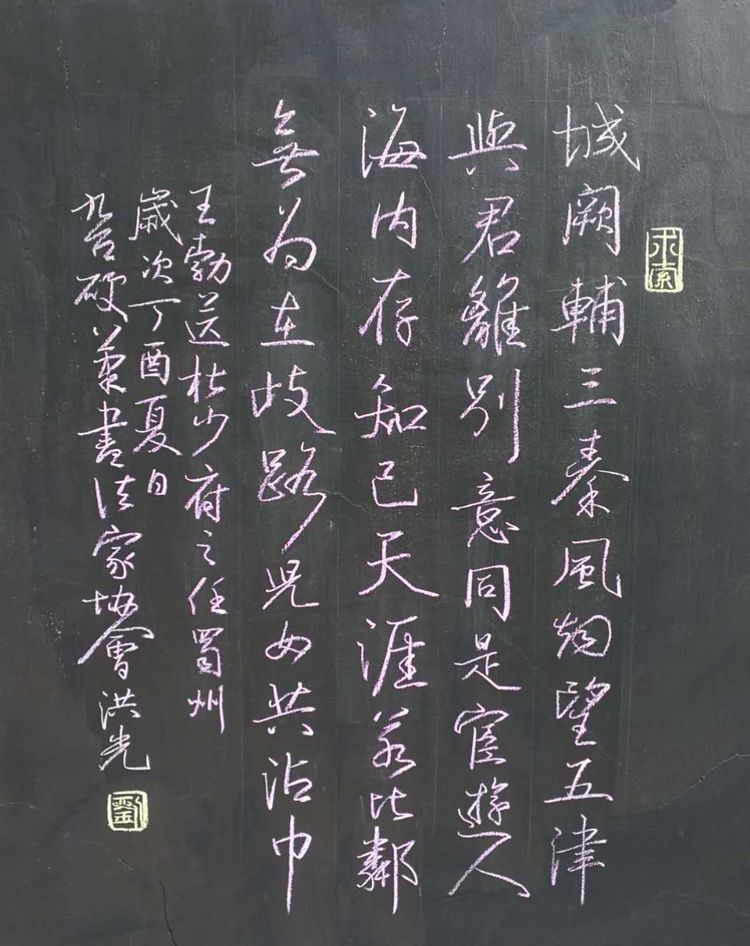 求索
城闕輔三秦風烟望五津
與君離別意同是宦遊人
海内存知己天涯若比鄰
無為在歧路兒女共沾巾
王勃送杜少府之任蜀州
歲次丁酉夏日
九台硬筆書法家協會洪光
劉